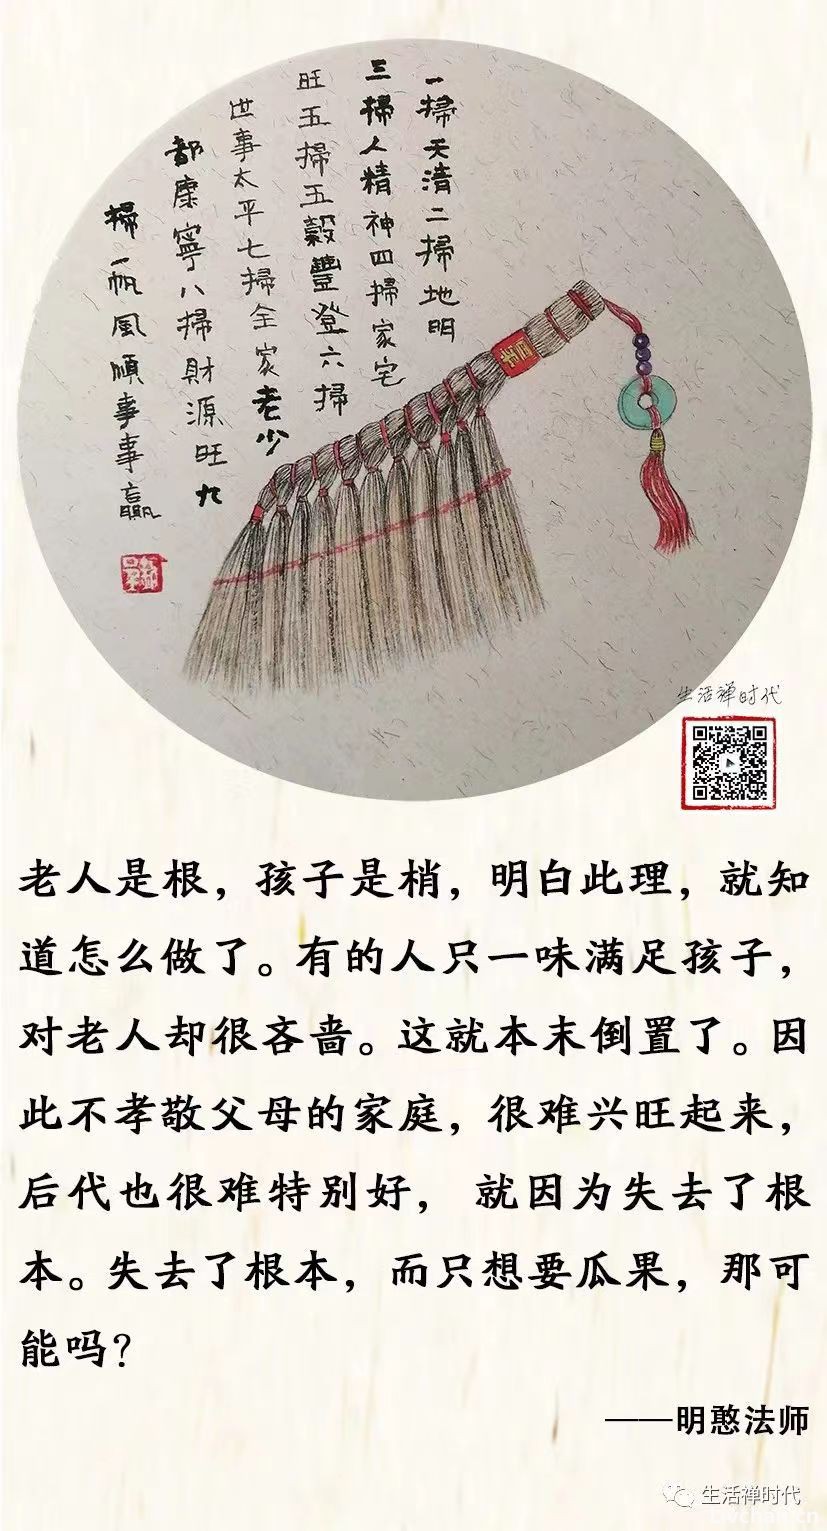 一掃天清二掃地明
三掃人精神四掃家宅
旺五掃五穀豐登六掃
世事太平七掃全家老少
都康寧八掃財源旺九
掃一帆風順事事贏
生活禅时代
老人是根，孩子是梢，明白此理，就知
道怎么做了。有的人只一味满足孩子，
对老人却很吝啬。这就本末倒置了。因
此不孝敬父母的家庭，很难兴旺起来，
后代也很难特别好， 就因为失去了根
本。失去了根本，而只想要瓜果，那可
能吗？
——明憨法师
生活禅时代